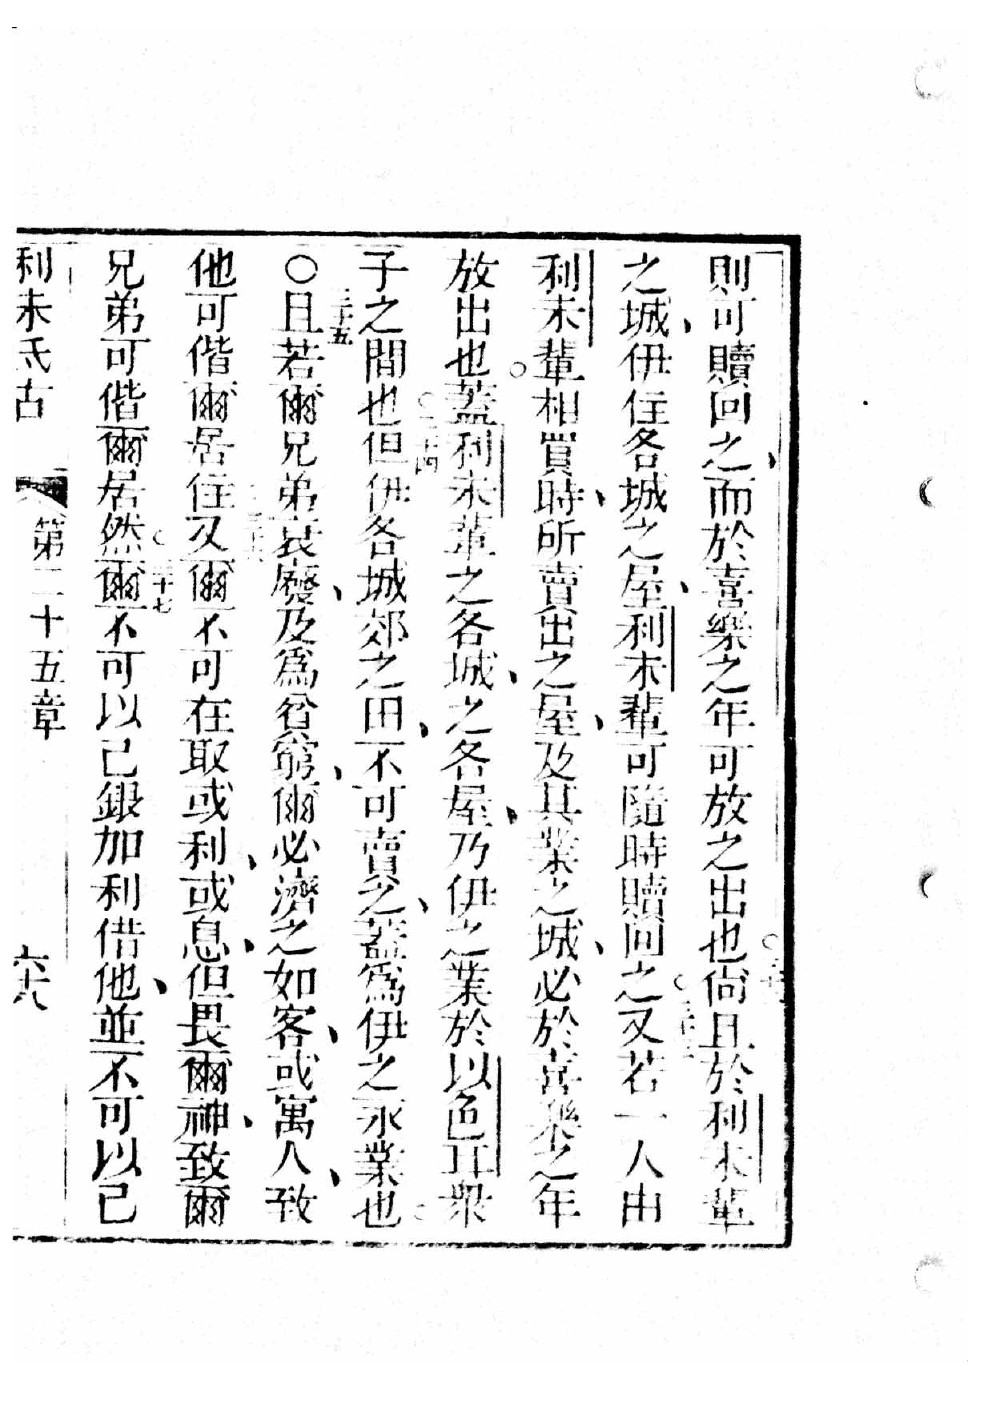 則可贖回之、而於喜樂之年可放之出也。尙且於利未輩
之城、伊住各城之屋、利未輩可隨時贖回之。又若一人由
利未輩相買時、所賣出之屋、及其業之城、必於喜樂之年
放出也。蓋利未輩之各城、之各屋、乃伊之業於以色耳衆
子之間也。但伊各城郊之田、不可賣之、蓋爲伊之永業也。
○三十五且若爾兄弟衰廢、及爲貧窮、爾必濟之如客、或寓人、致
他可偕爾居住。又爾不可在取或利、或息、但畏爾神、致爾
兄弟可偕爾居。三十七然爾不可以己銀加利借他、並不可以己
利未氏古 第二十五章 六十八